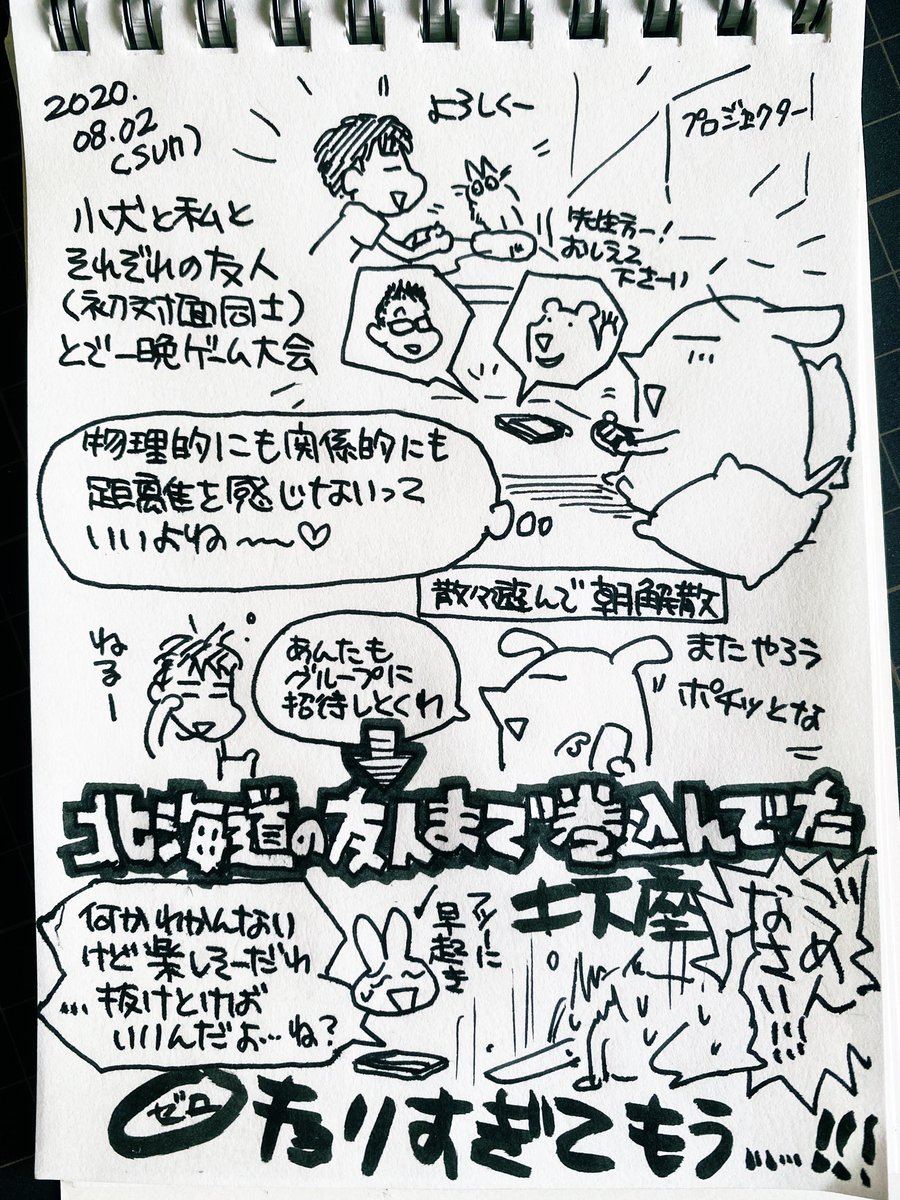 2020.
08.02
(sun)
小犬と私と
それぞれの友人
(初対面同士)
とで一晩ゲーム大会
よろしくー
プロジェクター
先生方ー!
おしえて
下さーい
物理的にも関係的にも
距離を感じないって
いいよね〜〜♡
散々遊んで朝解散
ねるー
あんたも
グループに
招待しとくわ
またやろう
ポチッとな
北海道の友人まで巻込んでた
何かわかんない
けど楽しそーだわ
…抜けとけば
いいんだよ…ね?
早起き
土下座
ごめん
なさい!!!
ゼロ
有りすぎてもう……!!!